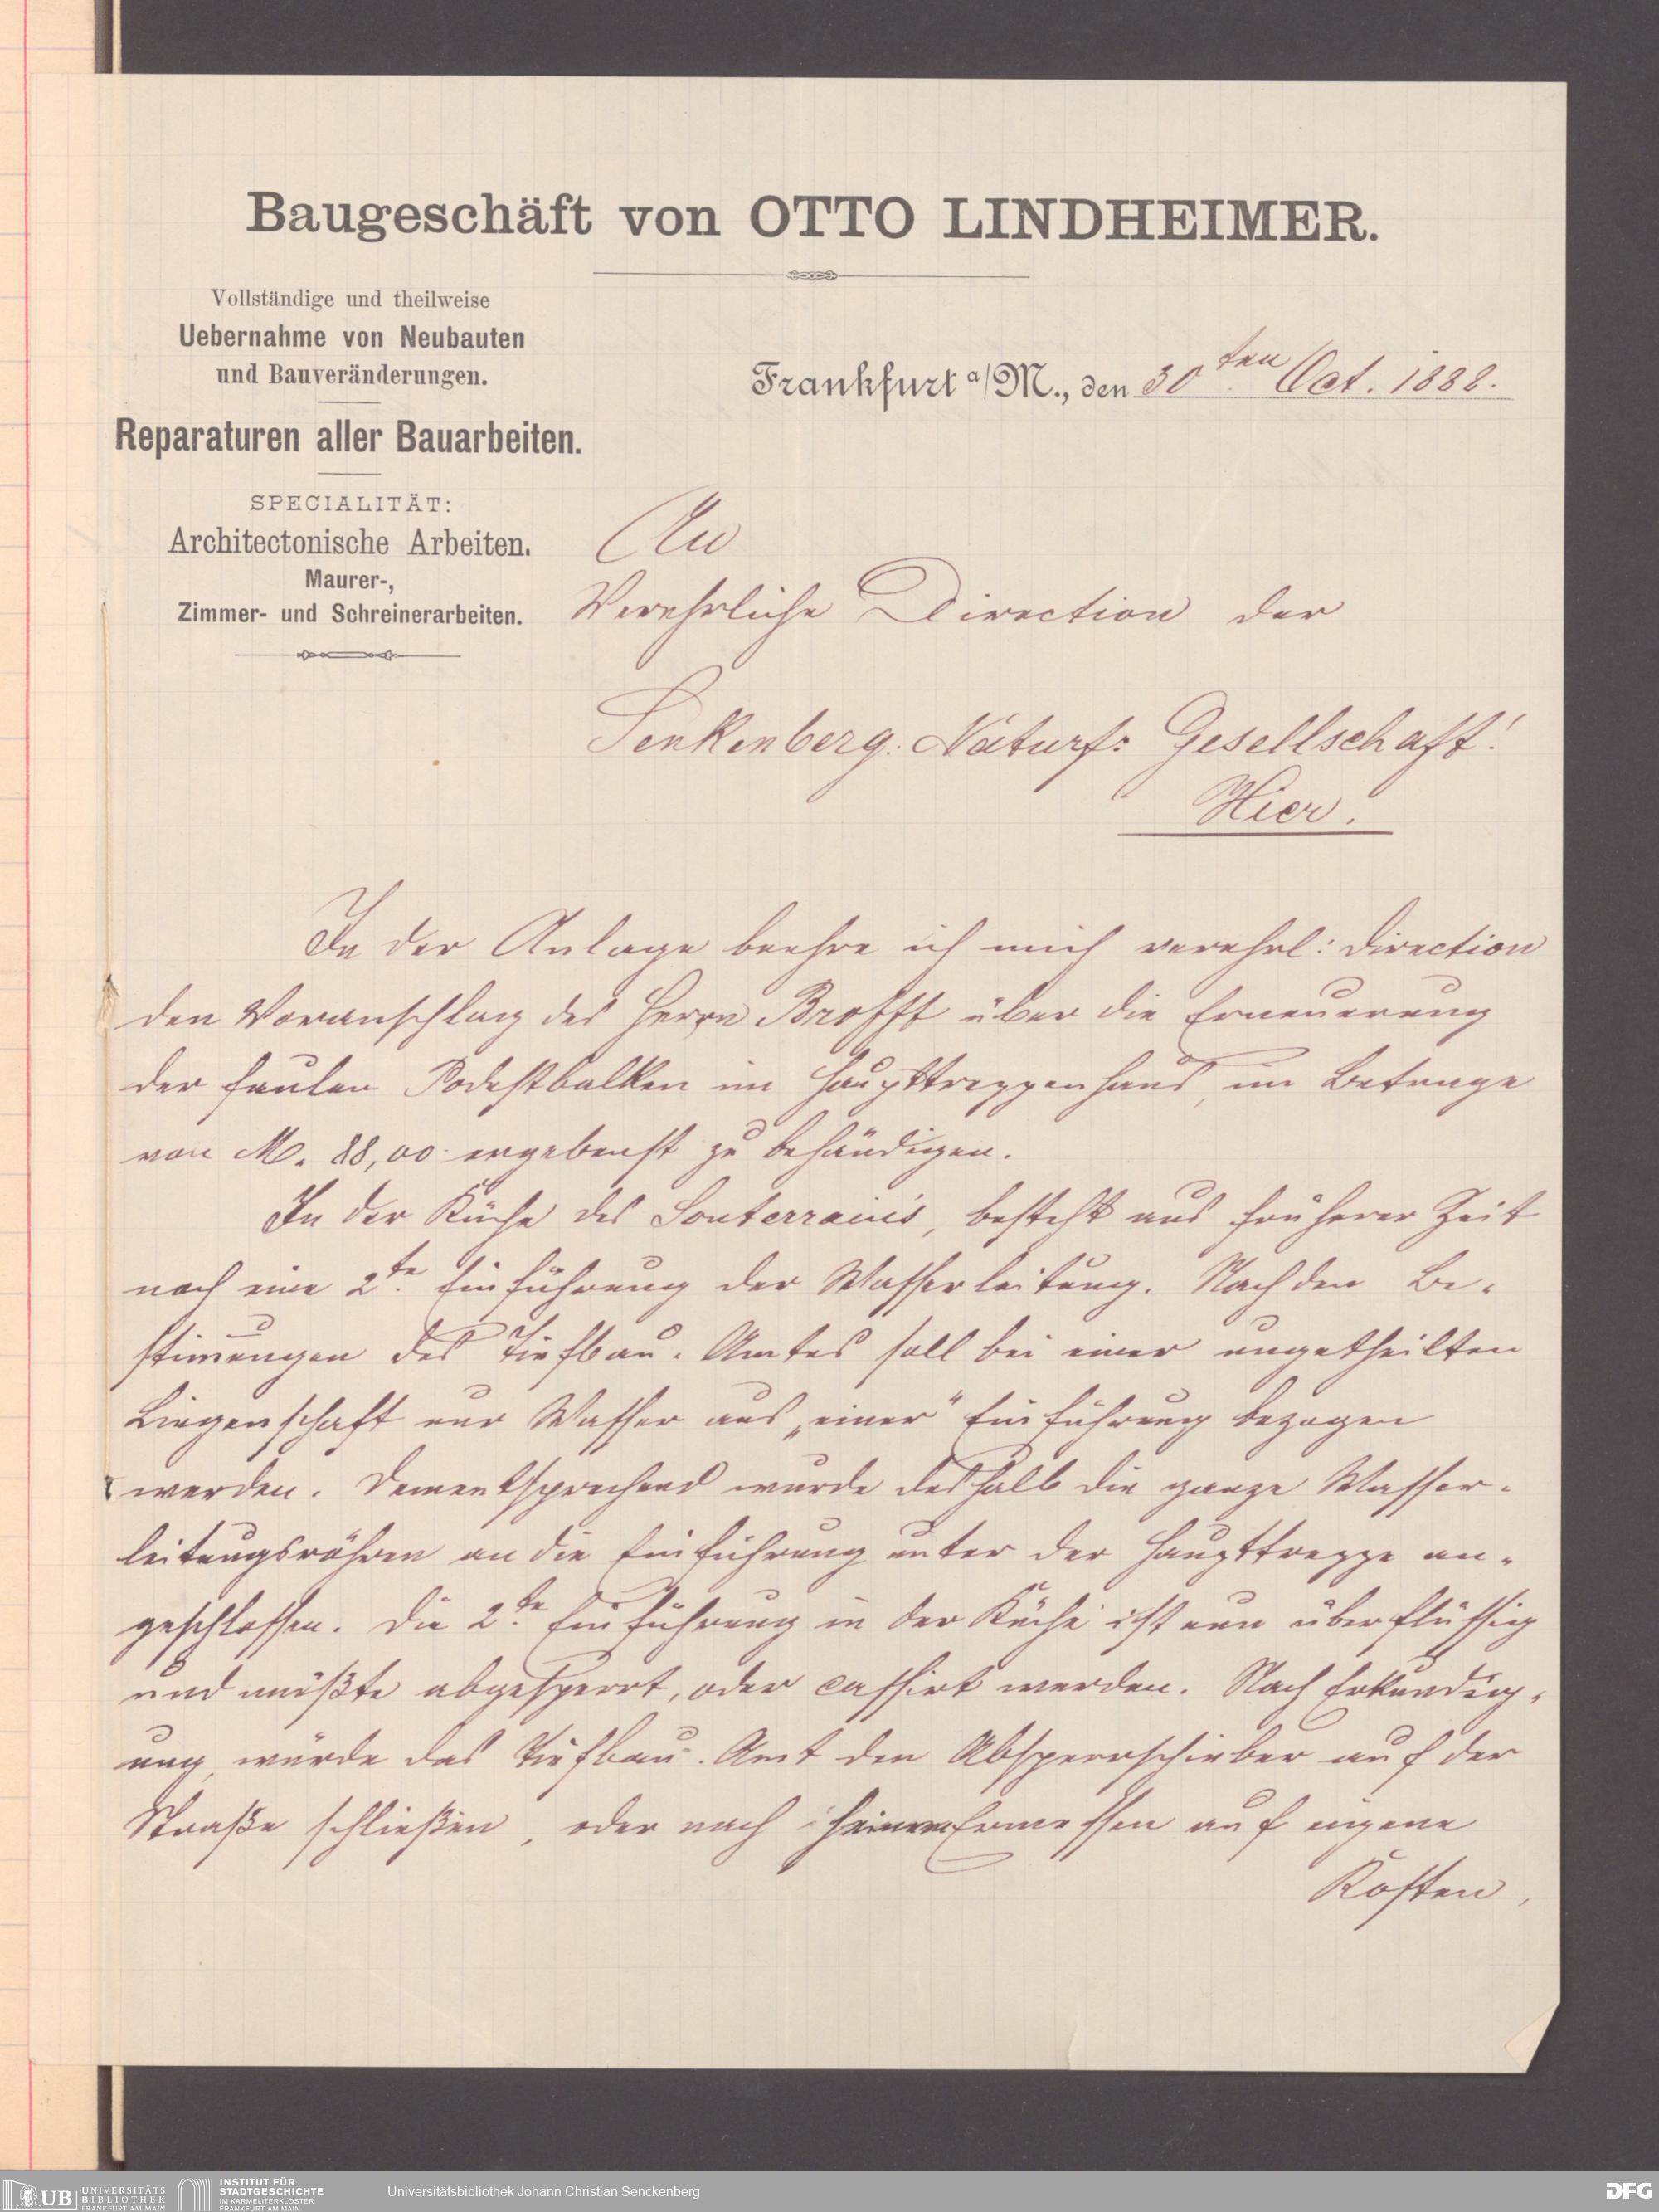 Baugeschäft von OTTO LINDHEIMER.
Vollständige und theilweise
Uebernahme von Neubauten
und Bauveränderungen.
Reparaturen aller Bauarbeiten.
SPECIALITÄT:
Architectonische Arbeiten.
Maurer-,
Zimmer- und Schreinerarbeiten.
Frankfurt a/M., den 30ten Oct. 1888.
An
Verehrliche Direction der
Senkenberg: Naturf: Gesellschaft!
Hier.
In der Anlage beehre ich mich verehrl: Direction
den Voranschlag des Herrn Brofft über die Erneuerung
der faulen Podestbalken im Haupttreppenhaus, im Betrage
von M. 88,00 ergebenst zu behändigen.
In der Küche des Souterrain's, besteht aus früherer Zeit
noch eine 2te. Einführung der Wasserleitung. Nach den Be-
stim̄ungen des Tiefbau-Amtes soll bei einer ungetheilten
Liegenschaft nur Wasser aus „einer" Einführung bezogen
werden. Dementsprechend wurde deshalb die ganze Wasser-
leitungsröhren an die Einführung unter der Haupttreppe an-
geschlossen. Die 2te. Einführung in der Küche ist nun überflüssig
und müßte abgesperrt, oder cassirt werden. Nach Erkundig-
ung, würde das Tiefbau-Amt den Absperrschieber auf der
Straße schließen, oder nach seinem Ermessen auf eigene
Kosten,
UB UNIVERSITÄTS
BIBLIOTHEK
FRANKFURT AM MAIN
INSTITUT FÜR
STADTGESCHICHTE
IM KARMELITERKLOSTER
FRANKFURT AM MAIN
Universitätsbibliothek Johann Christian Senckenberg
DFG